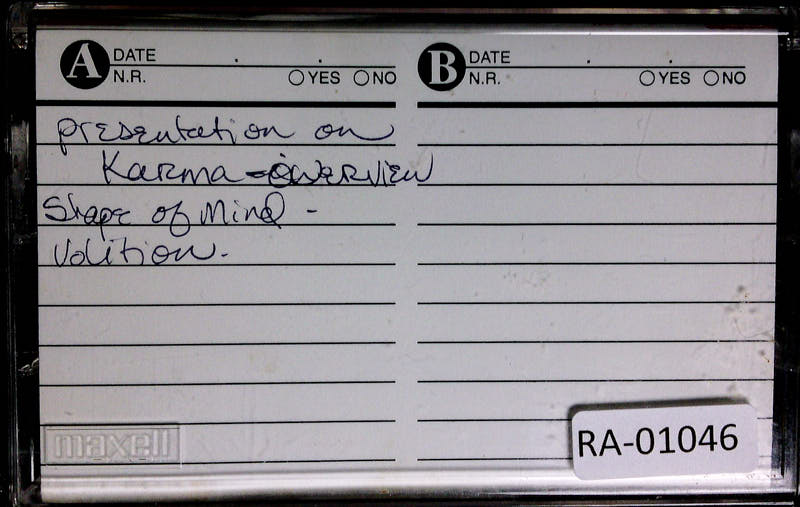 A DATE
N.R. YES NO
B DATE
N.R. YES NO
presentation on
Karma - overview
Shape of Mind -
Volition.
maxell
RA-01046